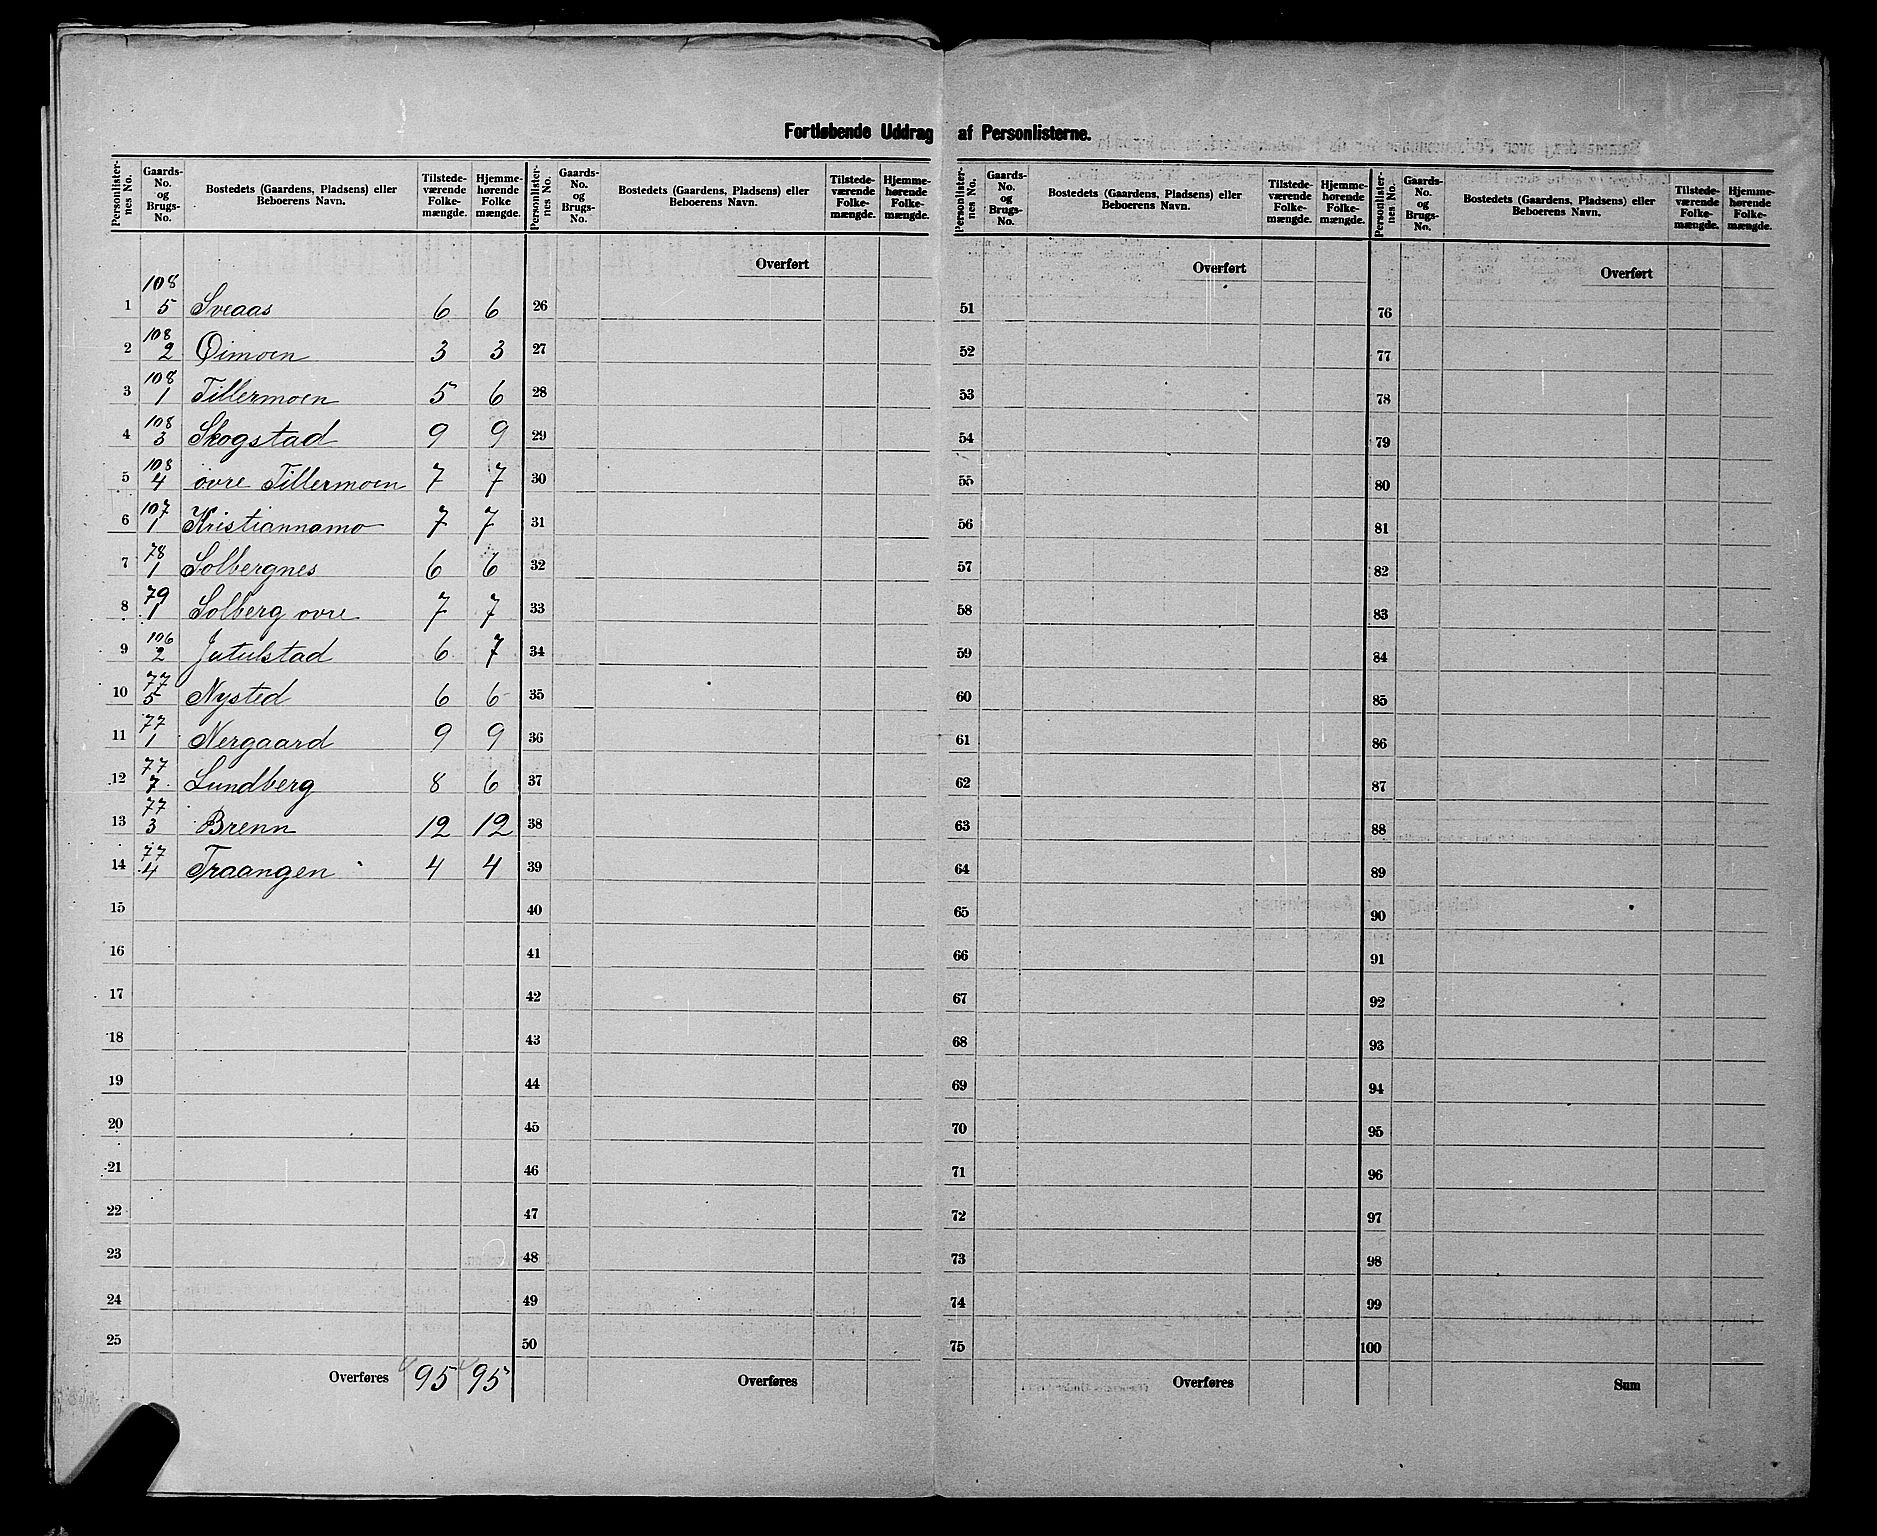 Fortløbende Uddrag af Personlisterne.
Personlister-nes No. Gaards-No. og Brugs-No. Bostedets (Gaardens, Pladsens) eller Beboerens Navn. Tilstede-værende Folke-mængde. Hjemme-hørende Folke mængde.
1 108 5 Sveaas 6 6
2 108 2 Øimoen 3 3
3 108 1 Tillermoen 5 6
4 108 3 Skogstad 9 9
5 108 4 øvre Tillermoen 7 7
6 107 1 Kristiannamo 7 7
7 78 1 Solbergnes 6 6
8 79 1 Solberg øvre 7 7
9 106 2 Jutulstad 6 7
10 77 5 Nysted 6 6
11 77 1 Nergaard 9 9
12 77 7 Lundberg 8 6
13 77 3 Brenn 12 12
14 77 4 Traangen 4 4
15
16
17
18
19
20
21
22
23
24
25
Overføres 95 95
Personlister-nes No. Gaards-No. og Brugs-No. Bostedets (Gaardens, Pladsens) eller Beboerens Navn. Tilstede-værende Folke-mængde. Hjemme-hørende Folke-mængde.
Overført
26
27
28
29
30
31
32
33
34
35
36
37
38
39
40
41
42
43
44
45
46
47
48
49
50
Overføres
Personlister-nes No. Gaards-No. og Brugs-No. Bostedets (Gaardens, Pladsens) eller Beboerens Navn. Tilstede-værende Folke-mængde. Hjemme-hørende Folke-mængde.
Overført
51
52
53
54
55
56
57
58
59
60
61
62
63
64
65
66
67
68
69
70
71
72
73
74
75
Overføres
Personlister-nes No. Gaards-No. og Brugs-No. Bostedets (Gaardens, Pladsens) eller Beboerens Navn. Tilstede-værende Folke-mængde. Hjemme-hørende Folke-mængde.
Overført
76
77
78
79
80
81
82
83
84
85
86
87
88
89
90
91
92
93
94
95
96
97
98
99
100
Sum